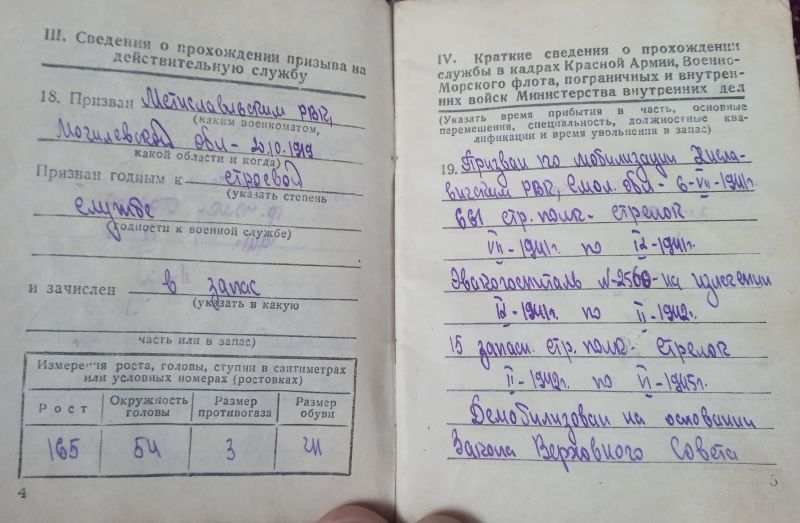 III. Сведения о прохождении призыва на
действительную службу
18. Призван Мстиславльским РВК,
(каким военкоматом,
Могилевской обл - 20.10.1919
какой области и когда)
Призван годным к строевой
(указать степень
службе
годности к военной службе)
и зачислен в запас
(указать в какую
часть или в запас)
Измерения роста, головы, ступни в сантиметрах
или условных номерах (ростовках)
Рост
Окружность
головы
Размер
противогаза
Размер
обуви
165
54
3
41
4
IV. Краткие сведения о прохождении
службы в кадрах Красной Армии, Военно-
Морского флота, пограничных и внутрен-
них войск Министерства внутренних дел
(Указать время прибытия в часть, основные
перемещения, специальность, должностные ква-
лификации и время увольнения в запас)
19. Призван по мобилизации Хисла-
вичским РВК, Смол. обл - 6-VII-1941г.
661 стр. полк - стрелок
VII-1941г. по IX-1941г.
Эвакогоспиталь N-2560 - на излечении
IX-1941г. по II-1942г.
15 запасн. стр. полк - стрелок
II-1942г. по VI-1945г.
Демобилизован на основании
Закона Верховного Совета
5